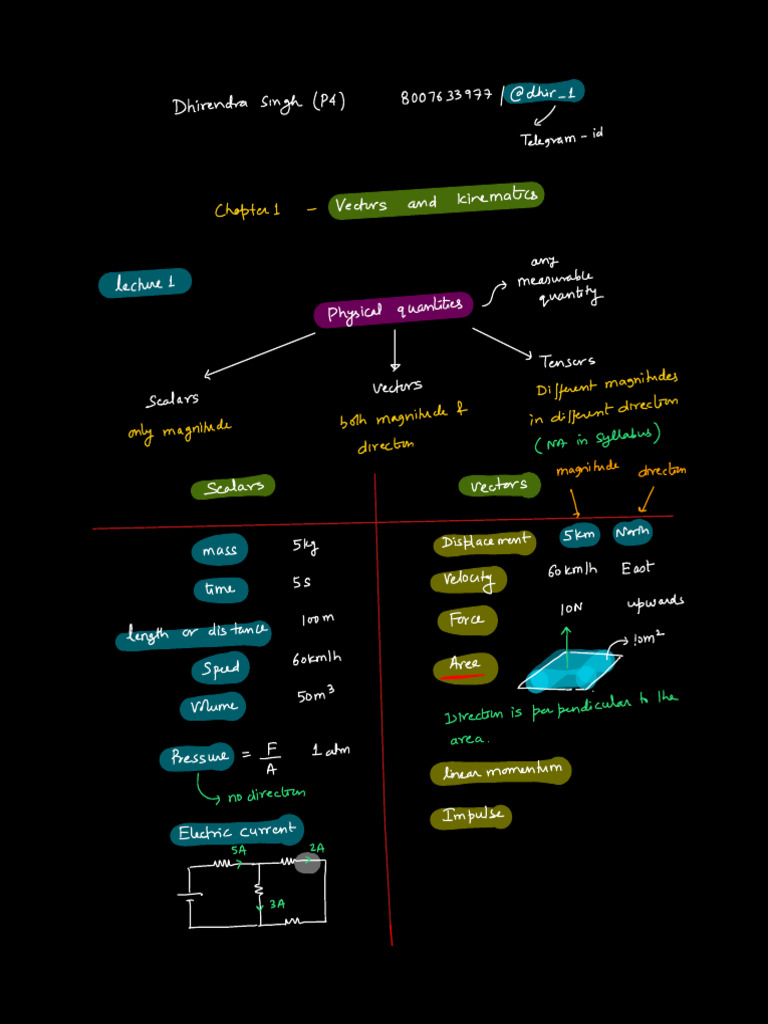 Dhirendra Singh (P4) 8007633977 / @dhir_1
Telegram-id
Chapter 1 - Vectors and kinematics
lecture 1
any
measurable
quantity
Physical quantities
Scalars
only magnitude
vectors
both magnitude &
direction
Tensors
Different magnitudes
in different direction
(NA in syllabus)
Scalars
mass 5kg
time 5s
length or distance 100m
Speed 60km/h
Volume 50m³
Pressure = F/A 1 atm
no direction
Electric current
5A 2A
3A
vectors
magnitude direction
Displacement 5km North
Velocity 60km/h East
Force 10N upwards
Area 10m²
Direction is perpendicular to the
area.
linear momentum
Impulse